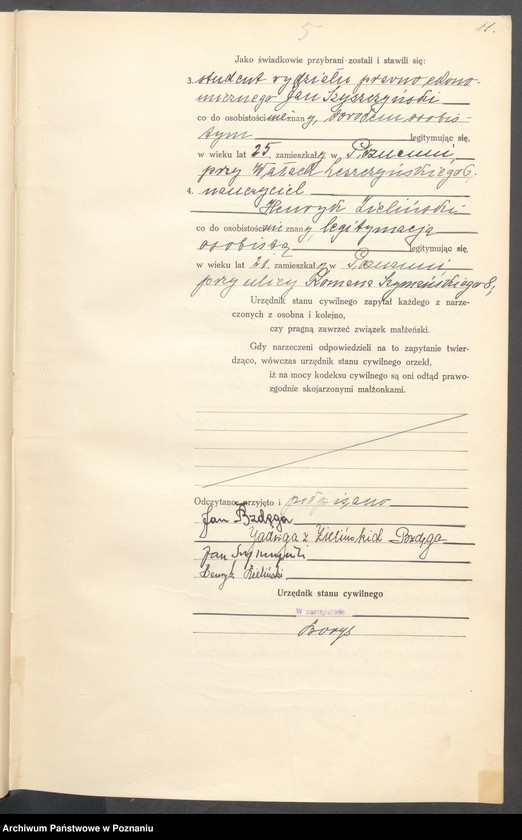 5
11.
Jako świadkowie przybrani zostali i stawili się:
3. student wydziału prawno ekono-
micznego Jan Szyszczyński
co do osobistości nie znany, dowodem osobis-
tym legitymując się,
w wieku lat 25, zamieszkały w Poznaniu,
przy Wałach Leszczyńskiego 6;
4. nauczyciel
Henryk Zieliński
co do osobistości nie znany, legitymacją
osobistą legitymując się,
w wieku lat 21, zamieszkały w Poznaniu,
przy ulicy Romana Szymańskiego 8;
Urzędnik stanu cywilnego zapytał każdego z narze-
czonych z osobna i kolejno,
czy pragną zawrzeć związek małżeński.
Gdy narzeczeni odpowiedzieli na to zapytanie twier-
dząco, wówczas urzędnik stanu cywilnego orzekł,
iż na mocy kodeksu cywilnego są oni odtąd prawo-
zgodnie skojarzonymi małżonkami.
Odczytano, przyjęto i podpisano
Jan Bzdęga
Jadwiga z Zielińskich Bzdęga
Jan
Henryk Zieliński
Urzędnik stanu cywilnego
W zastępstwie
Borys
Archiwum Państwowe w Poznaniu